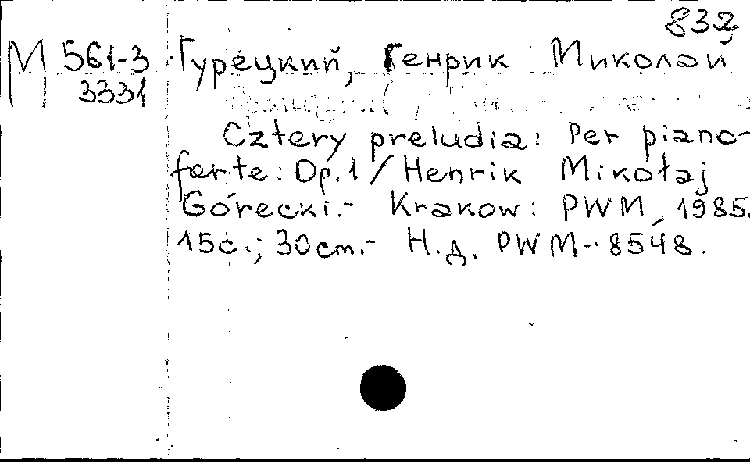 832
М 561-3
3331
Гурецкий, Генрик Миколай
Cztery preludia: Per piano-
forte: Op.1 / Henrik Mikołaj
Górecki.- Krakow: PWM, 1985.
15с.; 30cm.- Н.д. PWM-8548.